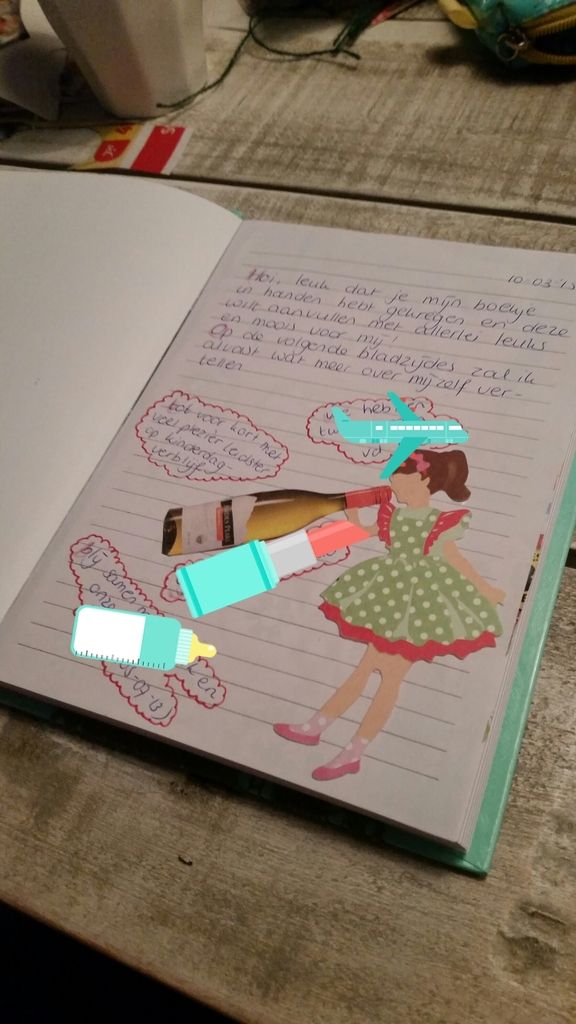 10-03-'15
Hoi, leuk dat je mijn boekje
in handen hebt gekregen en deze
wilt aanvullen met allerlei leuks
en moois voor mij!
Op de volgende bladzijdes zal ik
alvast wat meer over mijzelf ver-
tellen
tot voor kort met
veel plezier leidster
op kinderdag-
verblijf
heb
blij samen m
onze
en
-09-'13)